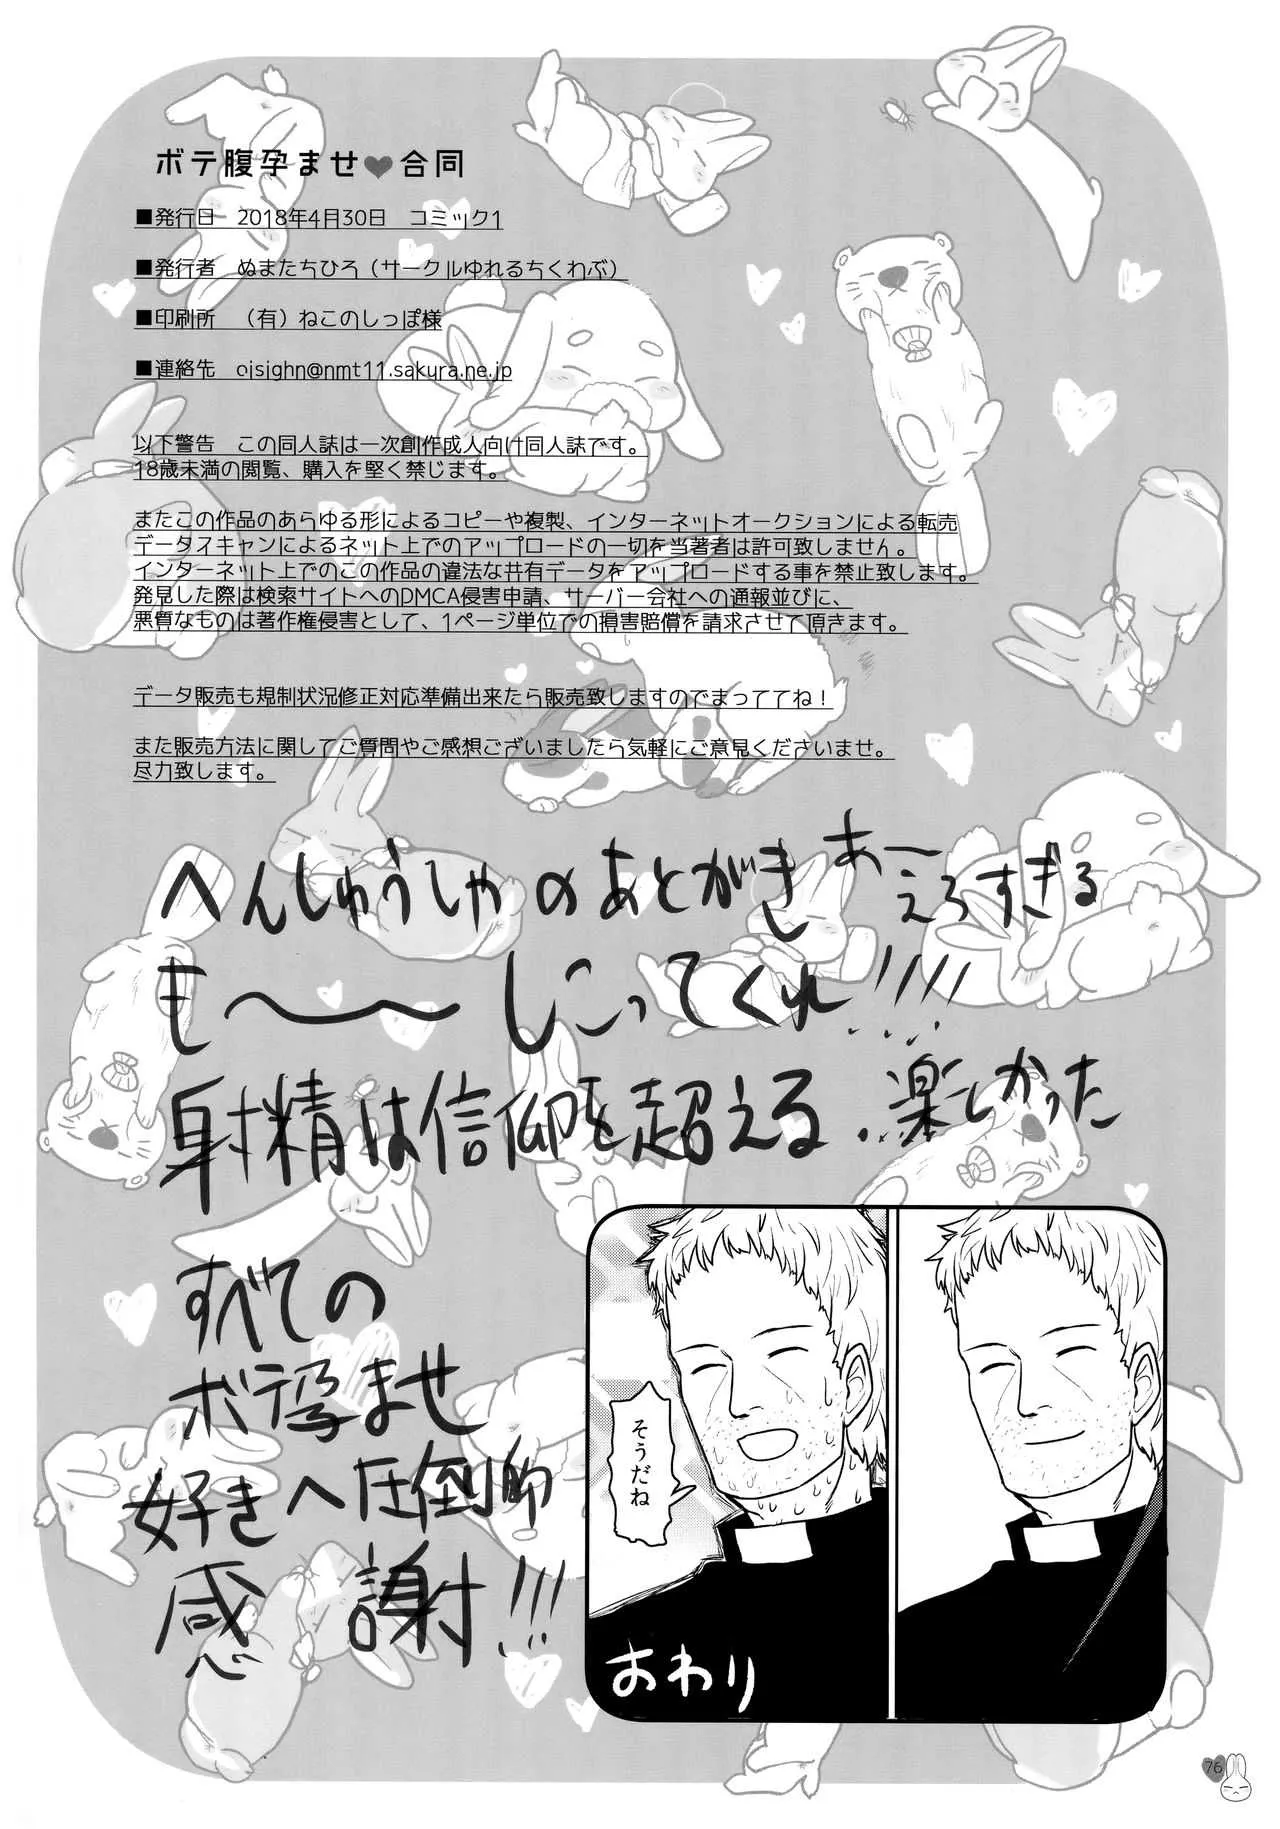 ボテ腹孕ませ♥合同
■発行日　2018年4月30日　コミック1
■発行者　ぬまたちひろ（サークルゆれるちくわぶ）
■印刷所　（有）ねこのしっぽ様
■連絡先　oisighn@nmt11.sakura.ne.jp
以下警告　この同人誌は一次創作成人向け同人誌です。
18歳未満の閲覧、購入を堅く禁じます。
またこの作品のあらゆる形によるコピーや複製、インターネットオークションによる転売
データスキャンによるネット上でのアップロードの一切を当著者は許可致しません。
インターネット上でのこの作品の違法な共有データをアップロードする事を禁止致します。
発見した際は検索サイトへのDMCA侵害申請、サーバー会社への通報並びに、
悪質なものは著作権侵害として、1ページ単位での損害賠償を請求させて頂きます。
データ販売も規制状況修正対応準備出来たら販売致しますのでまっててね！
また販売方法に関してご質問やご感想ございましたら気軽にご意見くださいませ。
尽力致します。
へんしゅうしゃのあとがき
あーえろすぎる
も〜〜しこってくれ!!!!
射精は信仰を超える…楽しかった
すべての
ボテ孕ませ
好きへ圧倒的
感謝!!!
そうだね
おわり
76